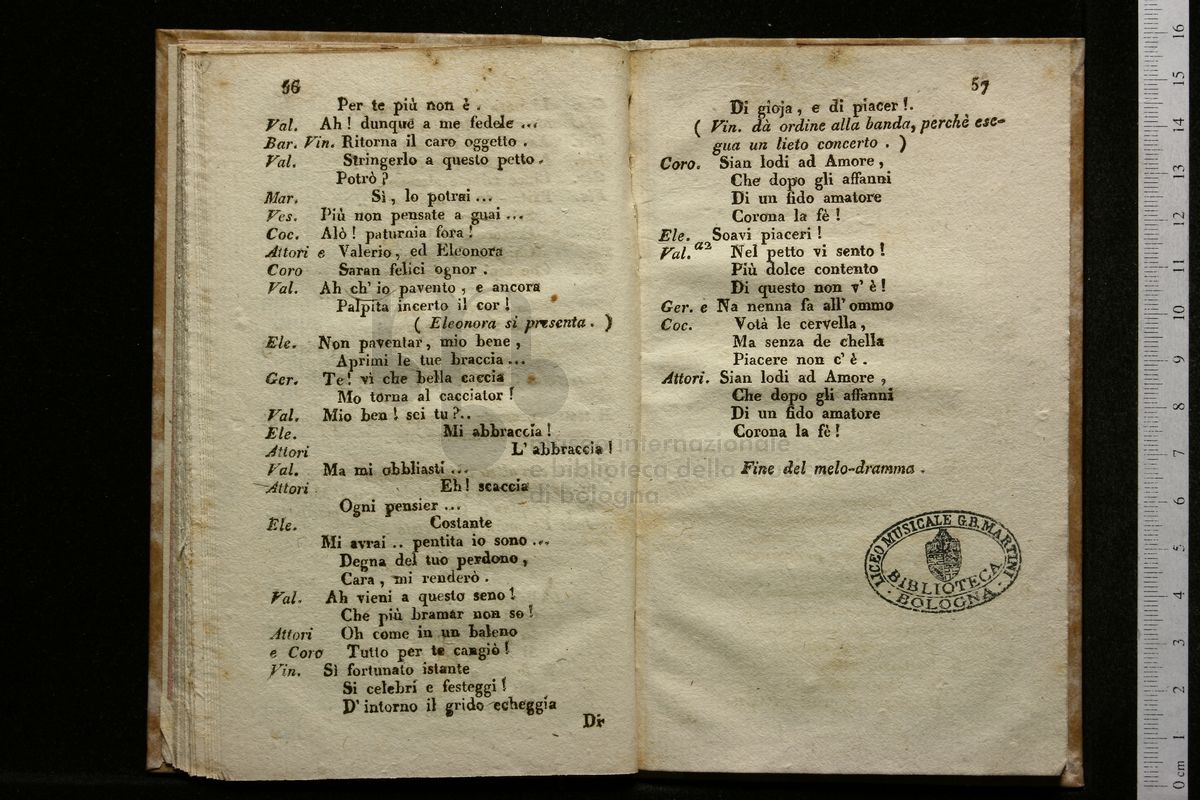 56
Per te più non è .
Val. Ah ! dunque a me fedele ...
Bar. Vin. Ritorna il caro oggetto .
Val. Stringerlo a questo petto .
Potrò ?
Mar. Sì , lo potrai ...
Ves. Più non pensate a guai ...
Coc. Alò ! paturnia fora !
Attori e Valerio , ed Eleonora
Coro Saran felici ognor .
Val. Ah ch' io pavento , e ancora
Palpita incerto il cor !
( Eleonora si presenta . )
Ele. Non paventar , mio bene ,
Aprimi le tue braccia ...
Ger. Te ! vi che bella caccia
Mo torna al cacciator !
Val. Mio ben ! sei tu ?..
Ele. Mi abbraccia !
Attori L' abbraccia !
Val. Ma mi obbliasti ...
Attori Eh ! scaccia
Ogni pensier ...
Ele. Costante
Mi avrai .. pentita io sono ...
Degna del tuo perdono ,
Cara , mi renderò .
Val. Ah vieni a questo seno !
Che più bramar non so !
Attori Oh come in un baleno
e Coro Tutto per te cangiò !
Vin. Sì fortunato istante
Si celebri e festeggi !
D' intorno il grido echeggia
Di
57
Di gioja , e di piacer !.
( Vin. dà ordine alla banda, perchè ese-
gua un lieto concerto . )
Coro. Sian lodi ad Amore ,
Che dopo gli affanni
Di un fido amatore
Corona la fè !
Ele. Soavi piaceri !
Val. a2 Nel petto vi sento !
Più dolce contento
Di questo non v' è !
Ger. e Na nenna fa all' ommo
Coc. Votà le cervella ,
Ma senza de chella
Piacere non c' è .
Attori. Sian lodi ad Amore ,
Che dopo gli affanni
Di un fido amatore
Corona la fè !
Fine del melo-dramma .
LICEO MUSICALE G.B. MARTINI
BIBLIOTECA
BOLOGNA
museo internazionale
e biblioteca della
di bologna
0 cm 1 2 3 4 5 6 7 8 9 10 11 12 13 14 15 16